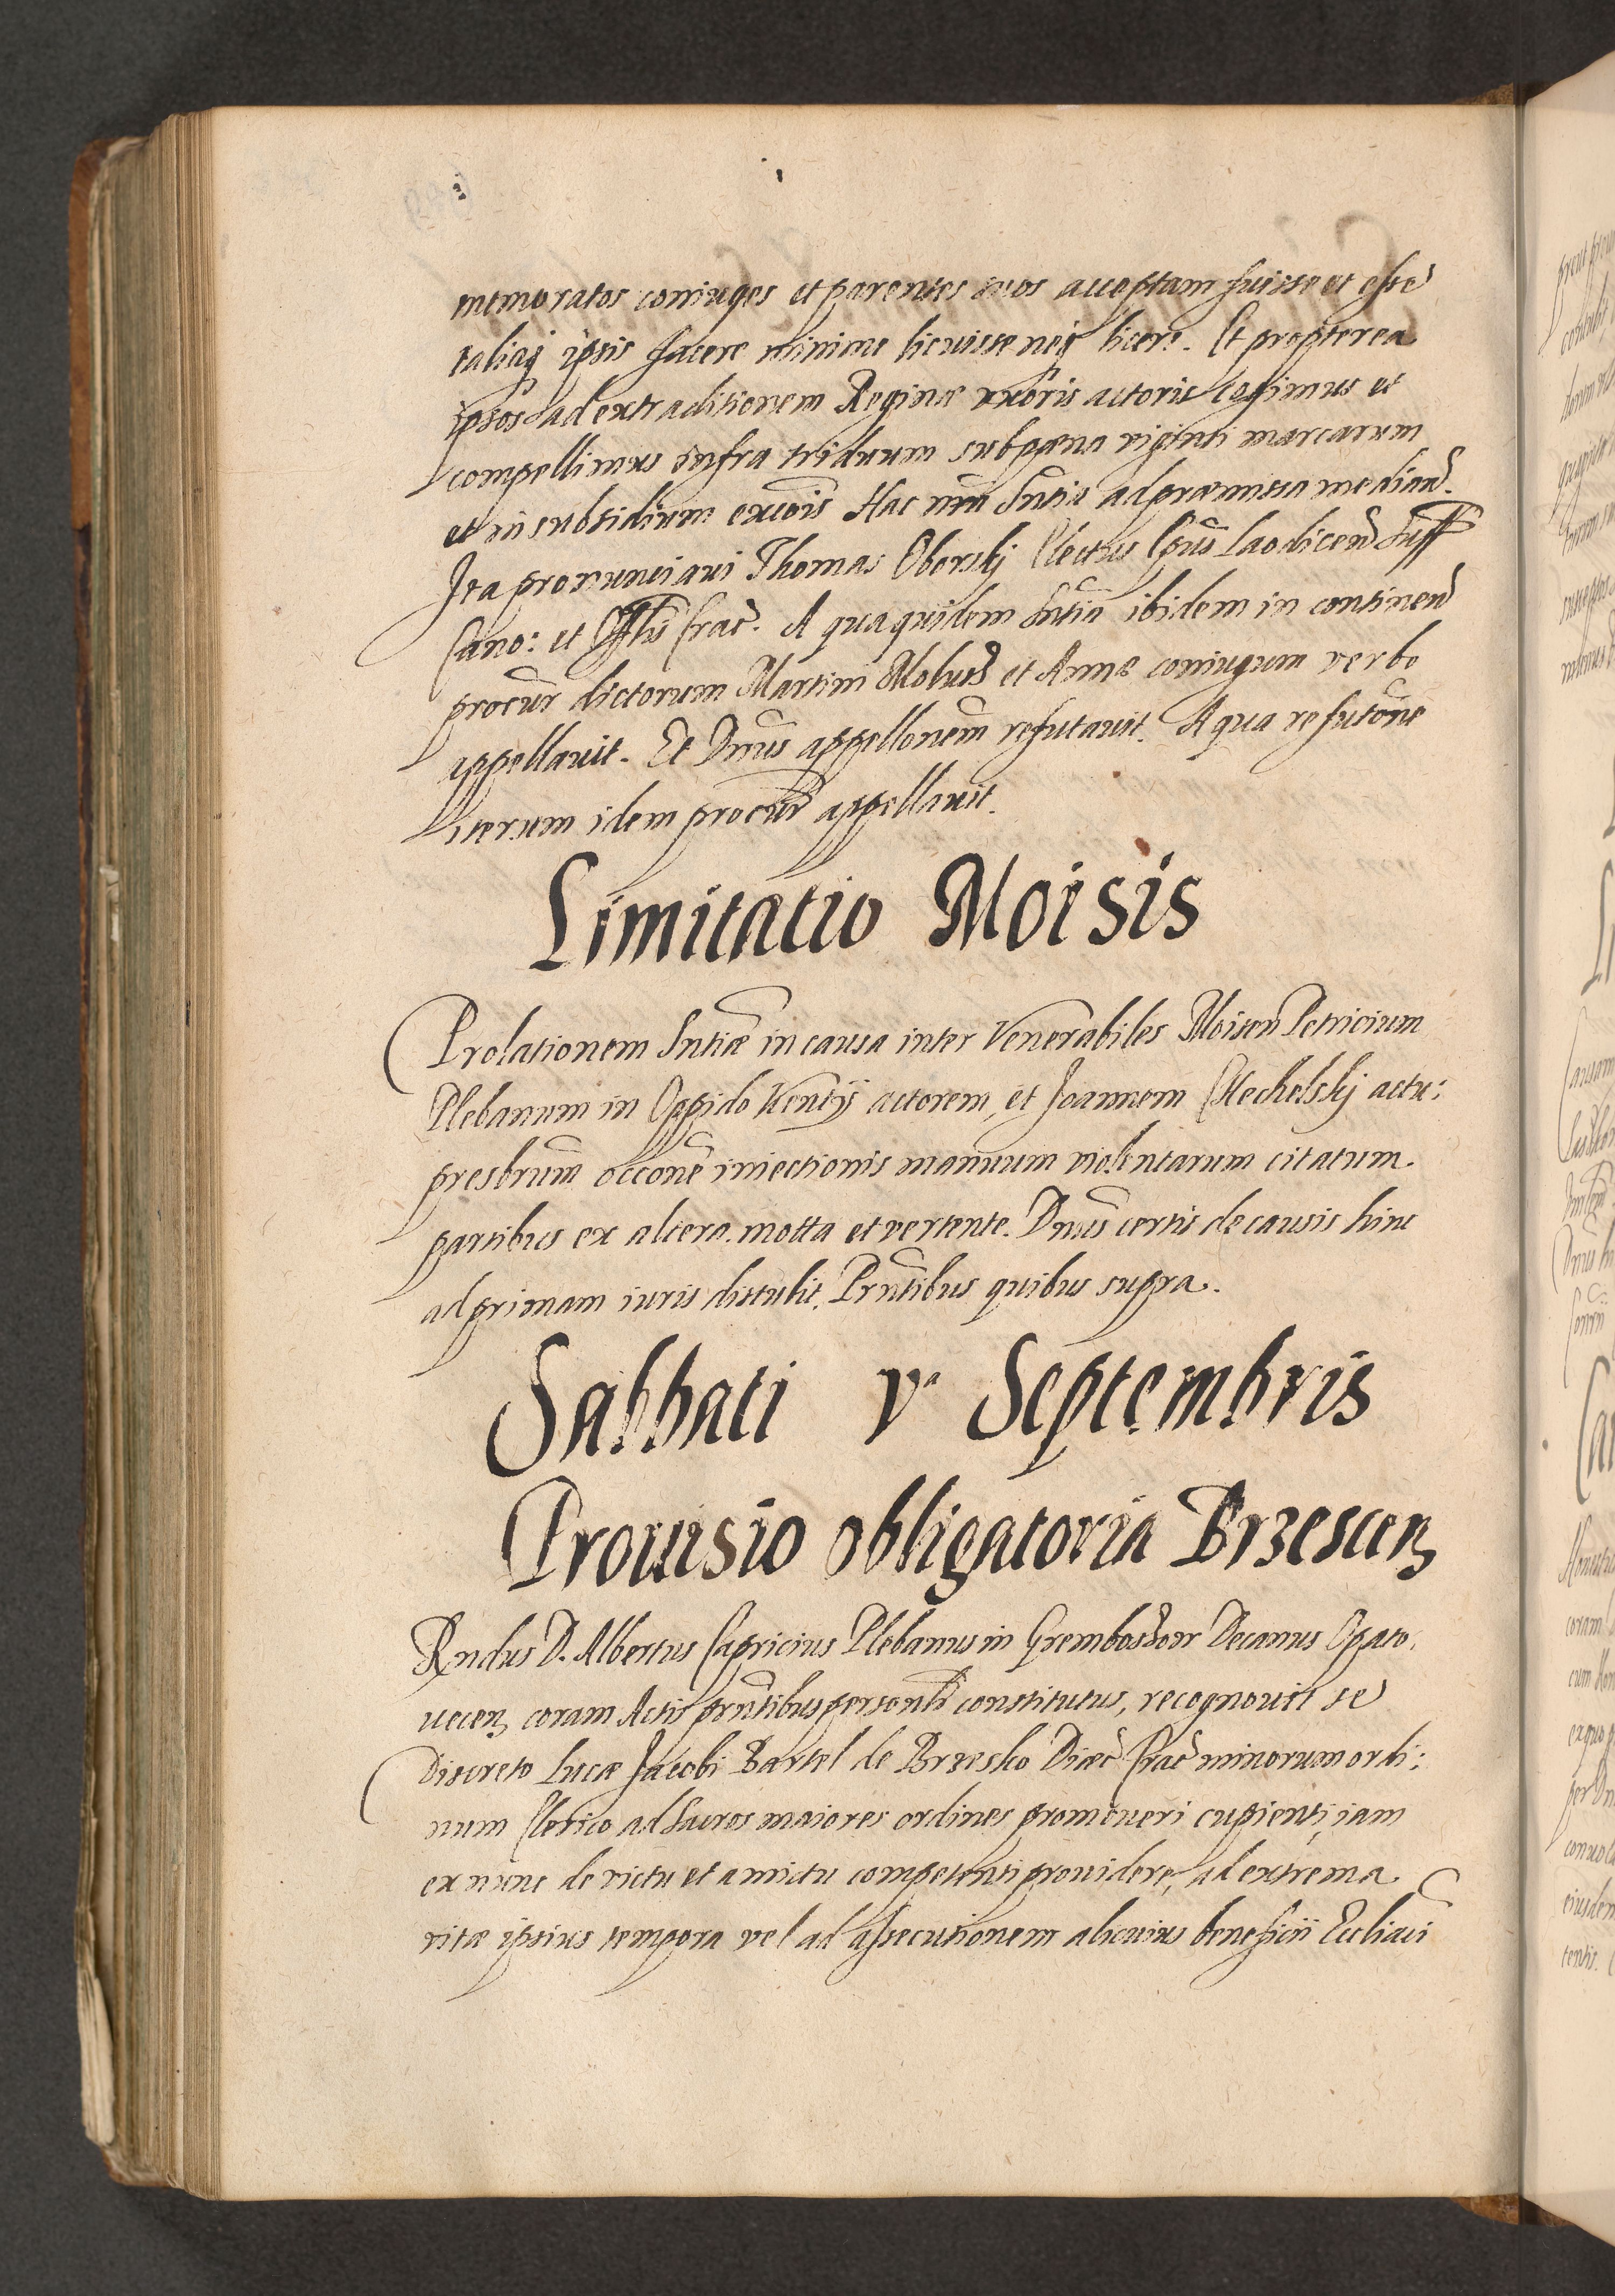 memoratos coniuges et parentes suos acceptam fuisse et esse
taliaq ipsis facere minime licuisse neq licere. Et propterea
ipsos ad extraditionem Reginæ uxoris actoris cogimus et
compellimus infra triduum sub pæna viginti marcarum
et in subsidium excõis Hac nrã Sntia ad præmissa mediañ.
Ita pronunciavi Thomas Oborskj Electus Epũs Laodiceñ Suff
Cano: et Offlis Crac̃. A qua quidem Sntia ibidem in continen
procur dictorum Martini et Annæ coniugum verbo
appellavit. Et Dnũs appellonem refutavit. A qua refutõne
iterum idem procur appellavit.
Limitatio Moisis
Prolationem Sntiæ in causa inter Venerabiles Moisen Petricium
Plebanum in Oppido Kentÿ actorem, et Joannem actu:
presbrum occone iniectionis manuum violentarum citatum.
partibus ex altera. motta et vertente. Dnũs certis de causis hinc
ad primam iuris distulit. Prntibus quibus supra.
Sabbati Vᵃ Septembris
Provisio obligatoria Brzescen
Rndus D. Albertus Capricius Plebanus in Decanus Opato.
uecen coram Actis prntibus personlr constitutus, recognovit se
Discreto Lucæ Jacobi Bartel de Brzesko Diæc̃ Crac̃ minorum ordi:
num Clerico ad Sacros maiores ordines promoueri cupienti, iam
ex nunc de victu et amictu competenti providere, ad extrema
vitæ ipsius tempora vel ad assecutionem alicuius beneficii Eccliaci